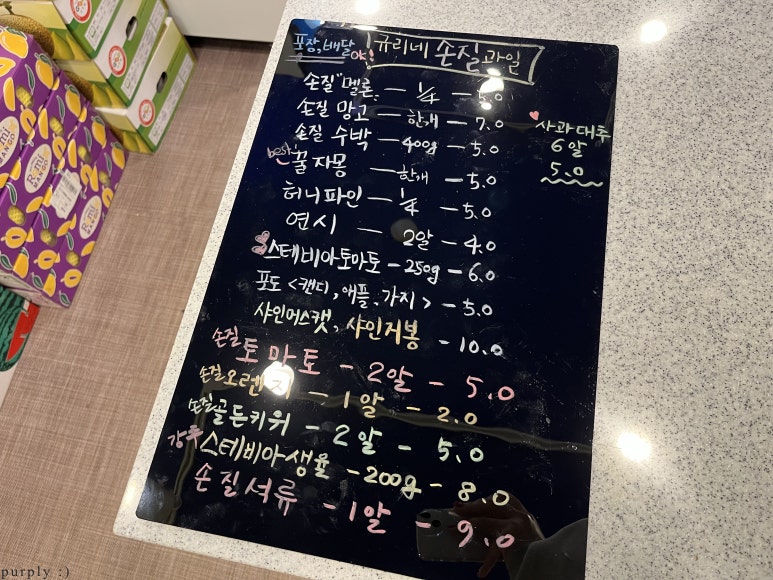 포장, 배달 ok!
규리네 손질과일
손질 멜론 - 1/4 - 5.0
손질 망고 - 한개 - 7.0
손질 수박 - 400g - 5.0
best! 꿀자몽 - 한개 - 5.0
허니파인 - 1/4 - 5.0
연시 - 2알 - 4.0
스테비아토마토 - 250g - 6.0
포도 <캔디, 애플, 가지> - 5.0
샤인머스캣, 샤인거봉 - 10.0
손질 토마토 - 2알 - 5.0
손질 오렌지 - 1알 - 2.0
손질 골든키위 - 2알 - 5.0
스테비아생율 - 200g - 8.0
손질석류 - 1알 - 9.0
사과대추
6알
5.0
purply :)